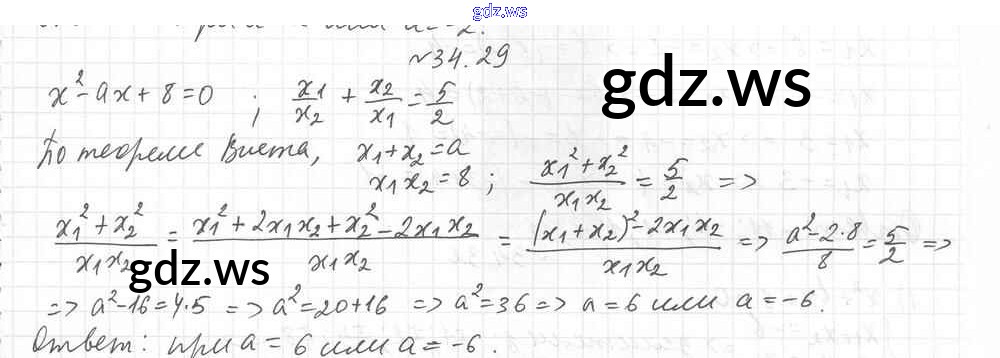 gdz.ws
а=-2.
№34.29
x²-ax+8=0 ; x1/x2 + x2/x1 = 5/2
gdz.ws
По теореме Виета, x1+x2=a
x1x2=8 ; (x1²+x2²)/(x1x2) = 5/2 =>
(x1²+x2²)/(x1x2) = (x1²+2x1x2+x2²-2x1x2)/(x1x2) = ((x1+x2)²-2x1x2)/(x1x2) => (a²-2·8)/8 = 5/2 =>
gdz.ws
=> a²-16=4·5 => a²=20+16 => a²=36 => a=6 или a=-6.
Ответ: при a=6 или a=-6.